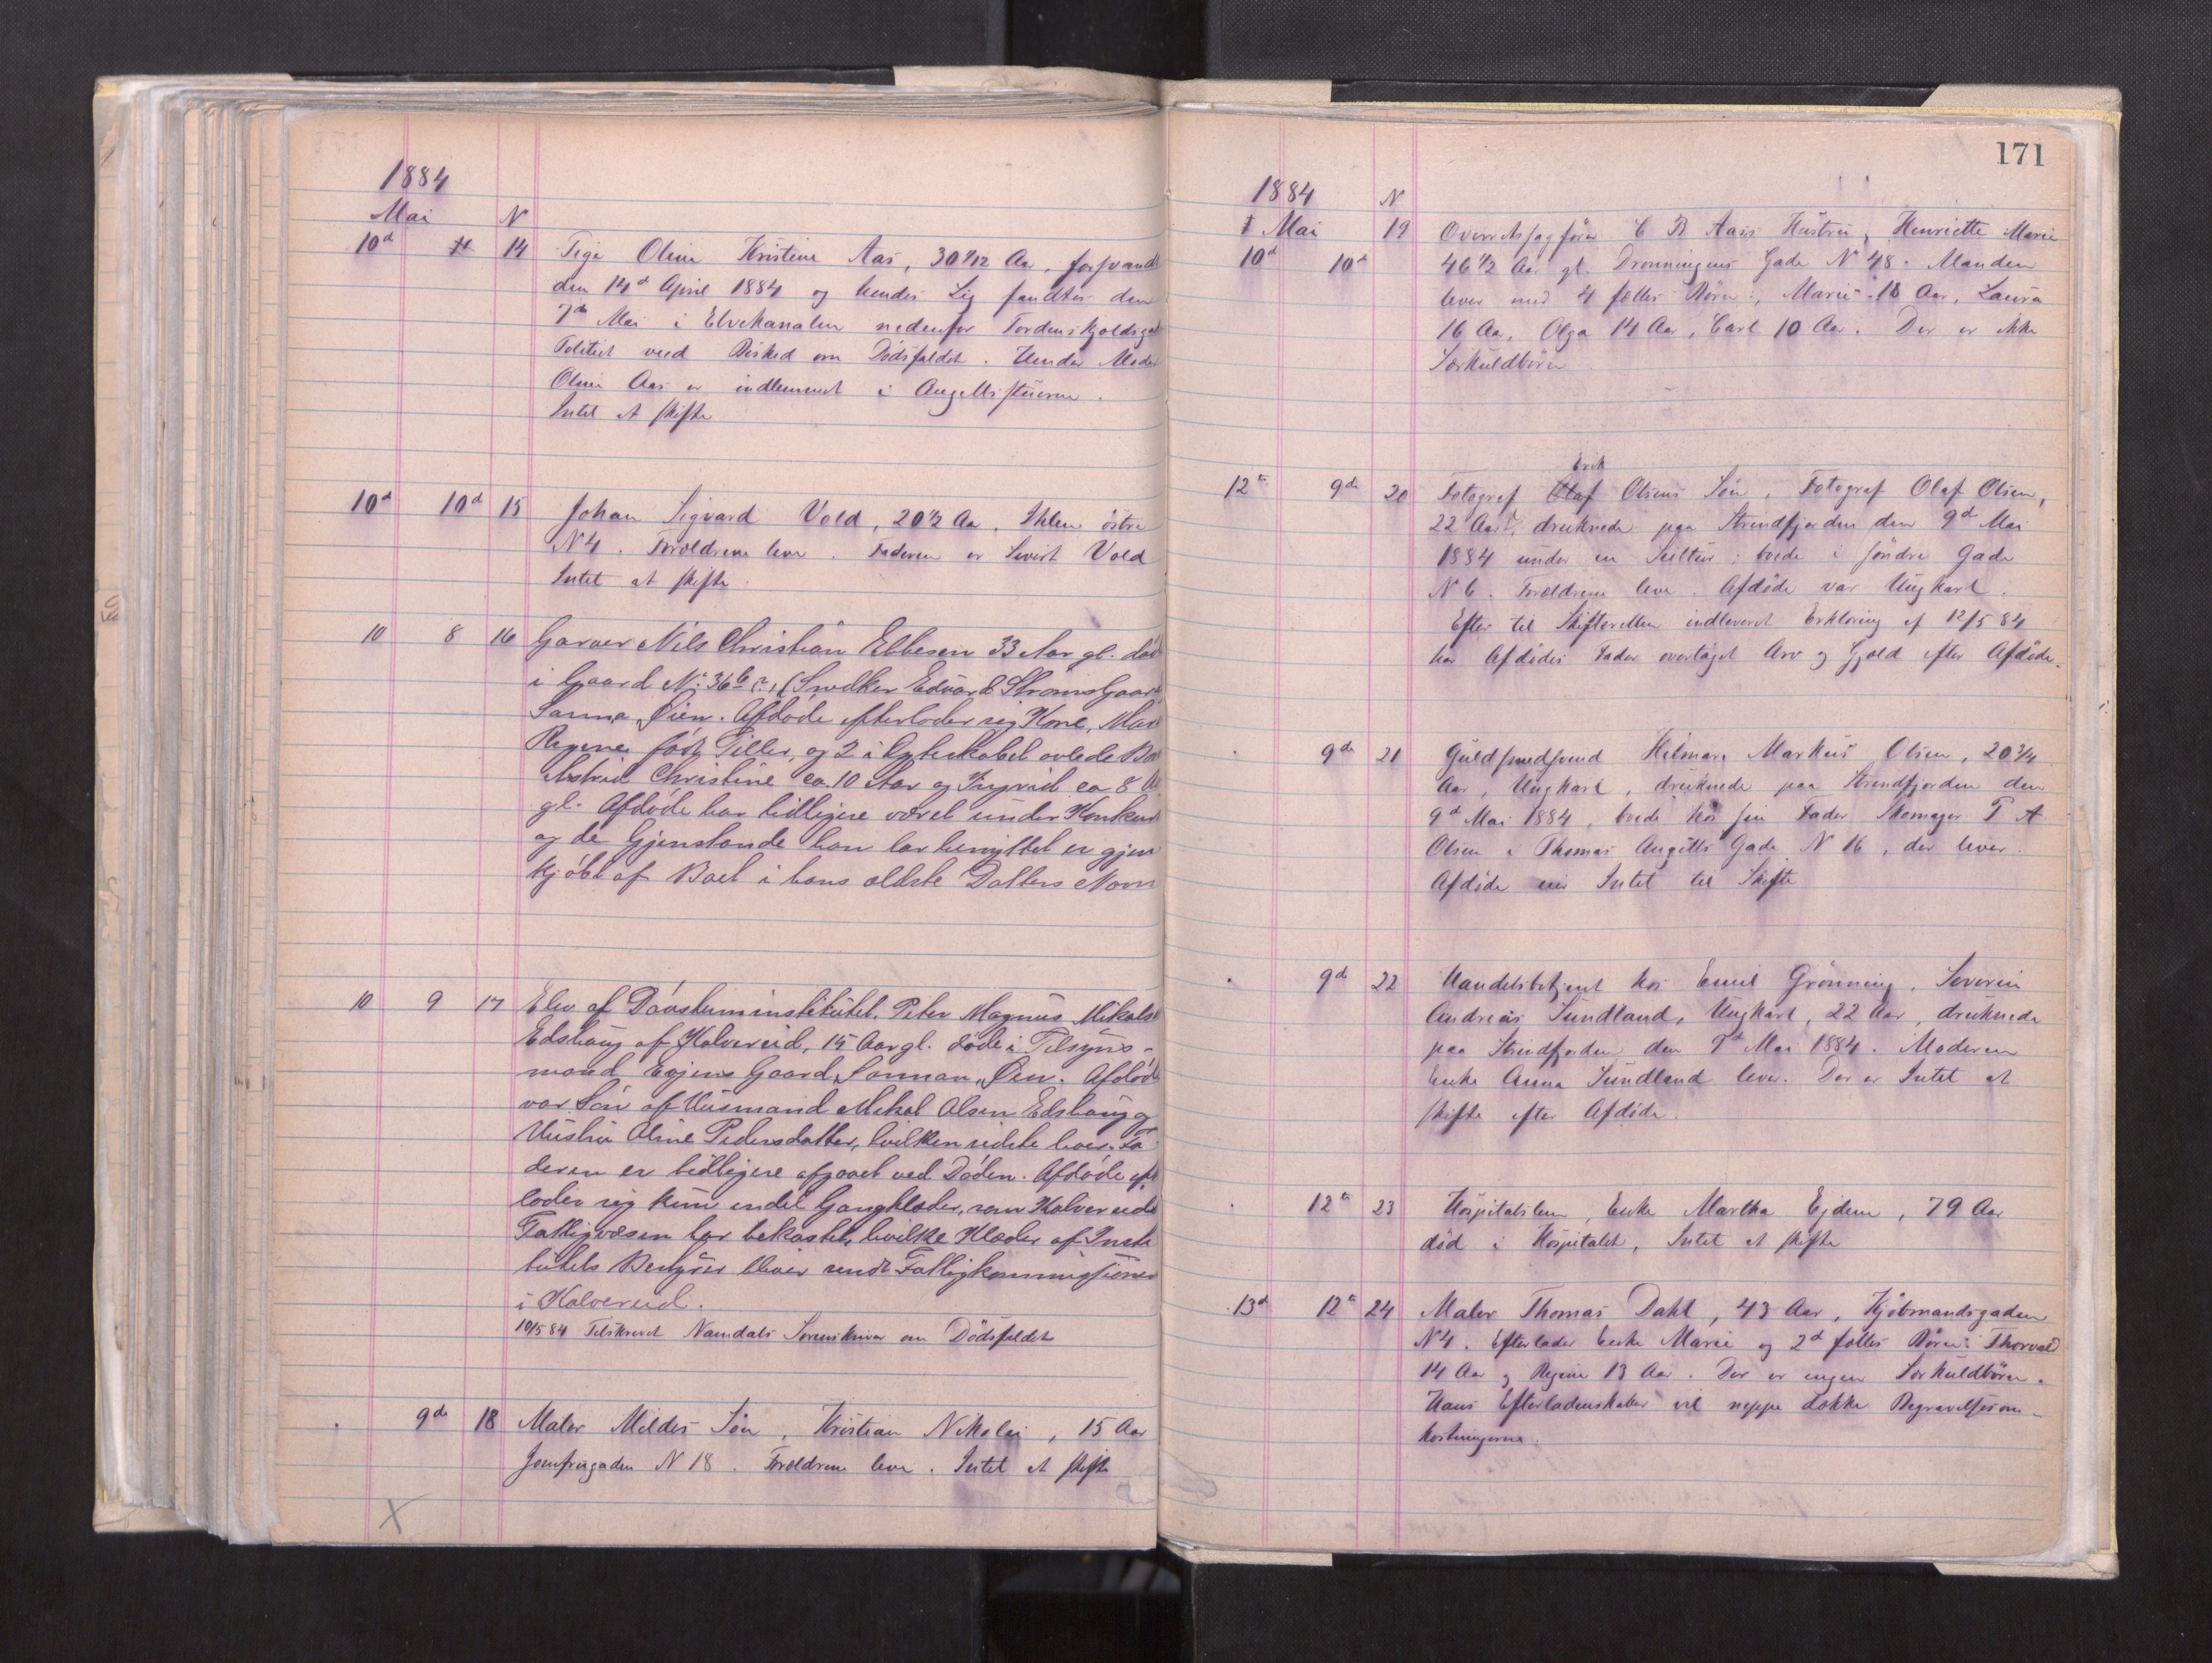 1884
Mai N
10d 14 Pige Oline Kristine Aas, 30 1/12 Aar, forsvandt
den 14d April 1884 og hendes Lig fandtes den
7de Mai i Elvekanalen nedenfor Tordenskjoldsgade
Politiet veed Besked om Dødsfaldet. Hendes Moder
Oline Aas er indlemmet i Angellsstuerne.
Intet at skifte
10d 10d 15 Johan Sigvard Vold, 20 1/2 Aar, Ihlen östre
N 4. Forældrene lever. Faderen er Sivert Vold
Intet at skifte.
10 8 16 Garver Nils Christian Ebbesen 33 Aar gl. død
i Gaard No. 36b (Snedker Edvard Strøms Gaard
Sanna, Øien. Afdøde efterlader sig Kone,
Regine født Tiller, og 2 i Egteskabet avlede
Astrid Christine ca 10 Aar og Ingrid ca 8
gl. Afdøde har tidligere været under
og de Gjenstande han har benyttet er gjen
kjøbt af Boet i hans ældste Datters Navn
10 9 17 Elev af Døvstuminstitutet, Peter Magnus
Edshaug af Kolvereid, 15 Aar gl. døde i Tilsyns-
mand Gaard, Sannan, Øien. Afdøde
var Søn af Husmand Mikal Olsen Edshaug og
Hustru Oline Pedersdatter, hvilken sidste lever. Fa-
deren er tidligere afgaaet ved Døden. Afdøde eft
lader sig kun endel Gangklæder, som Kolvereids
Fattigvæsen har bekostet, hvilke Klæder af Insti
tutets Bestyrer bliver sendt Fattigkommissionen
i Kolvereid.
10/5 84 Tilskrevet Namdals Sorenskriver om Dødsfaldet
9de 18 Maler Mildes Søn, Kristian Nikolai, 15 Aar
Jomfrugaden N 18. Forældrene lever. Intet at skifte
171
1884 N
Mai 19 Overretssagfører C B Aass Hustru, Henriette Marie
10d 10d 46 1/2 Aar gl. Dronningens Gade N 48. Manden
lever med 4 fælles Børn:, Marie 18 Aar, Laura
16 Aar, Olga 14 Aar, Carl 10 Aar. Der er ikke
Særkuldbörn
Erik
12te 9de 20 Fotograf Olaf Olsens Søn, Fotograf Olaf Olsen,
22 Aar, druknede paa Strindfjorden den 9d Mai
1884 under en Seiltur; boede i søndre Gade
N 6. Forældrene lever. Afdøde var Ungkarl.
Efter til Skifteretten indleveret Erklæring af 12/5 84
har Afdødes Fader overtaget Arv og Gjæld efter Afdøde.
9de 21 Guldsmedsvend Hilmar Markus Olsen, 20 3/4
Aar, Ungkarl, druknede paa Strindfjorden den
9d Mai 1884, boede hos sin Fader Skomager P A
Olsen i Thomas Angells Gade N 16, der lever.
Afdøde eier Intet til Skifte
9de 22 Handelsbetjent hos Emil Grønning, Severin
Andreas Sundland, Ungkarl, 22 Aar, druknede
paa Strindfjorden den 9d Mai 1884. Moderen
Enke Anna Sundland lever. Der er Intet at
skifte efter Afdøde.
12te 23 Hospitalslem, Enke Martha Ejdem, 79 Aar
død i Hospitalet, Intet at skifte
13d 12te 24 Maler Thomas Dahl, 43 Aar, Kjøbmandsgaden
N 4. Efterlader Enke Marie og 2d fælles Børn: Thorvald
14 Aar og Regine 13 Aar. Der er ingen Særkuldbörn.
Hans Efterladenskaber vil neppe dække Begravelsesom-
kostningerne.